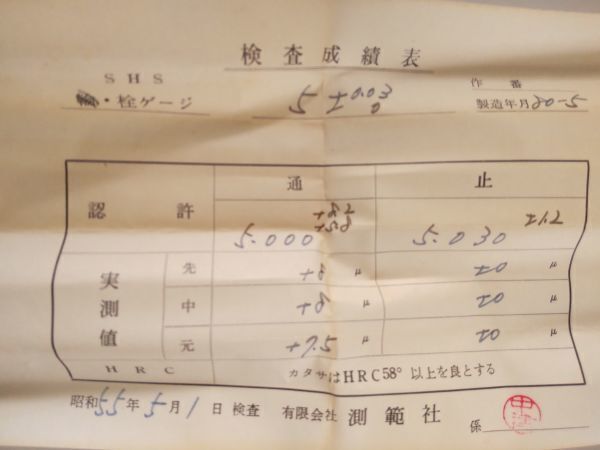 検査成績表
SHS
・栓ゲージ
5 ± 0.03 0
作番
製造年月80-5
通 止
認許
5.000
5.030 ±1.2
実測値
先 +8 μ ±0 μ
中 +8 μ ±0 μ
元 +7.5 μ ±0 μ
HRC カタサはHRC58°以上を良とする
昭和55年5月1日検査 有限会社 測範社 係